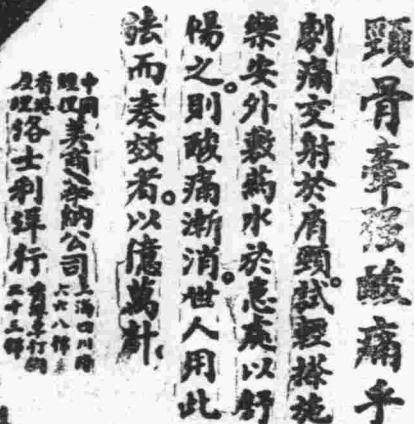 頸骨牽强酸痛乎
劇痛交射於肩頸。試輕搽施
樂安外敷葯水於患處以舒
暢之。則酸痛漸消。世人用此
法而奏效者。以億萬計
中國經理英商納公司上海四川路六六八號
香港經理洛士利洋行香港打二十三號